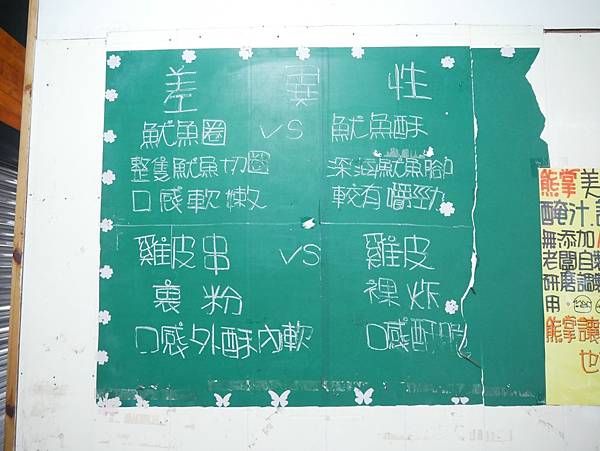 差異性
魷魚圈 VS 魷魚酥
整隻魷魚切圈 深海魷魚腳
口感軟嫩 較有嚼勁
雞皮串 VS 雞皮
裹粉 裸炸
口感外酥內軟 口感酥脆
熊掌美
醃汁.
無添加
老闆自
研磨調
用
熊掌讓
也